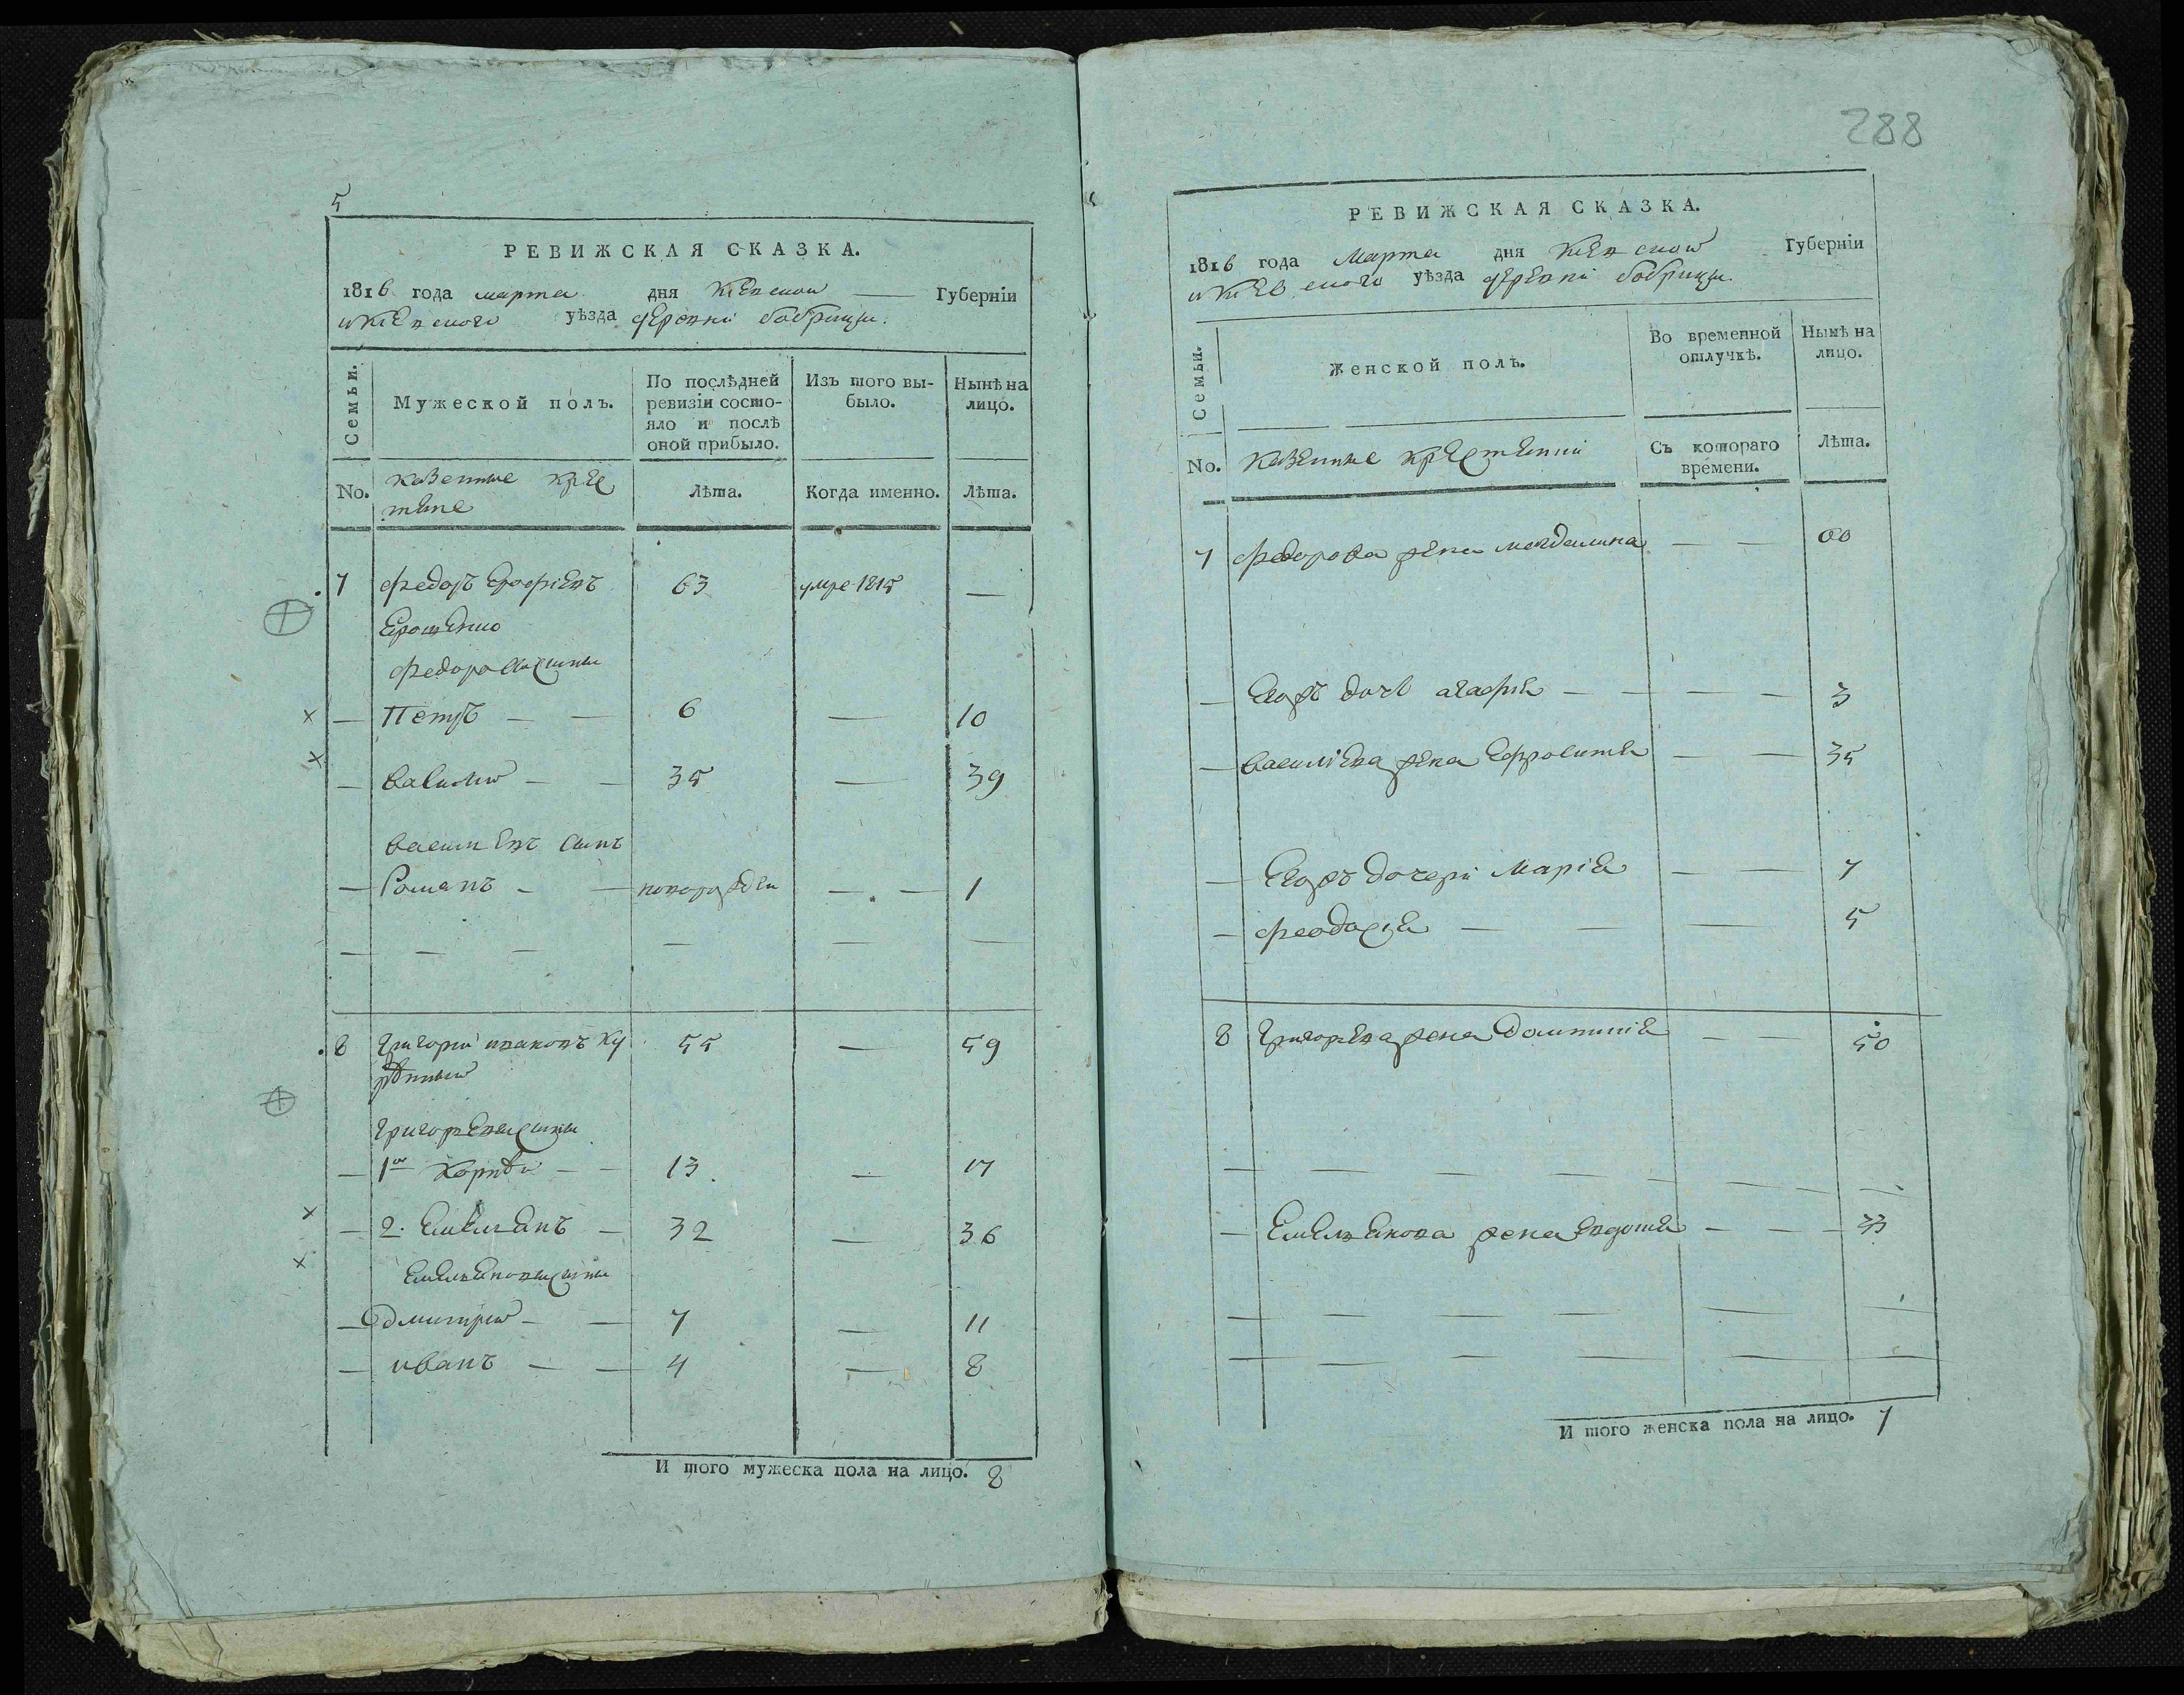 5
РЕВИЖСКАЯ СКАЗКА.
1816 года марта дня Киевской Губернїи
и Киевского уѣзда деревни бобрицы.
Семьи.
Мужеской полъ.
По послѣдней ревизїи состо-
яло и послѣ оной прибыло.
Изъ того вы-
было.
Нынѣ на лицо.
No.
казенные крес
тяне
Лѣта.
Когда именно.
Лѣта.
7 Федоръ Ерофѣевъ 63 умре 1815 —
Ерошенко
Федоровы сыны
— Петръ — — 6 — 10
— Василий — — 35 — 39
Васильевъ сынъ
— Романъ — — новорожден — — 1
8 Григорий Иваковъ Ку 55 — 59
Григорьевы сыны
— 1й Корнѣй — — 13 — 17
— 2. Емельянъ — 32 — 36
Емельяновы сыны
— Дмитрий — — 7 — 11
— иванъ — — 4 — 8
И того мужеска пола на лицо. 8
288
РЕВИЖСКАЯ СКАЗКА.
1816 года Марта дня Киевской Губернїи
и Киевского уѣзда деревни бобрицы.
Семьи.
Женской полъ.
Во временной
отлучкѣ.
Нынѣ на
лицо.
No.
казенные крестянки
Съ котораго
времени.
Лѣта.
7 Федорова жена Магдалина — — 60
— Егожъ дочь агафия — — — — 3
— Васильева жена Ефросиния — — 35
— Егожъ дочери Мария — — 7
— феодосия — — — 5
8 Григорьева жена Домникия — — 50
— Емельянова жена Евдотия — — — 33
И того женска пола на лицо. 7